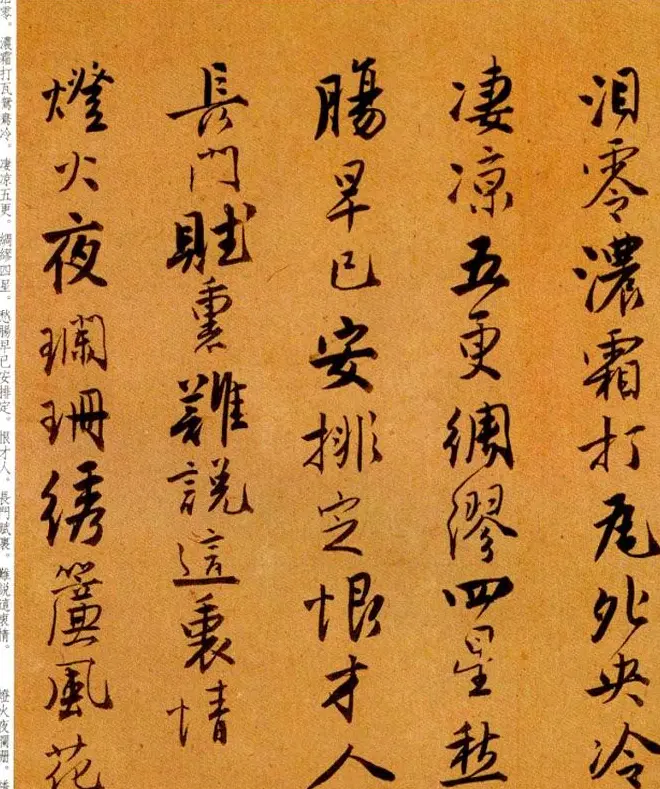 泪零濃霜打瓦夗央冷
凄凉五更綢繆四星愁
腸早已安排定恨才人
長門賦裏難說這衷情
燈火夜瓓珊綉簾風花
零。濃霜打瓦鴛鴦冷。凄凉五更。綢繆四星。愁腸早已安排定。恨才人。長門賦裏。難說這衷情。燈火夜瓓珊。